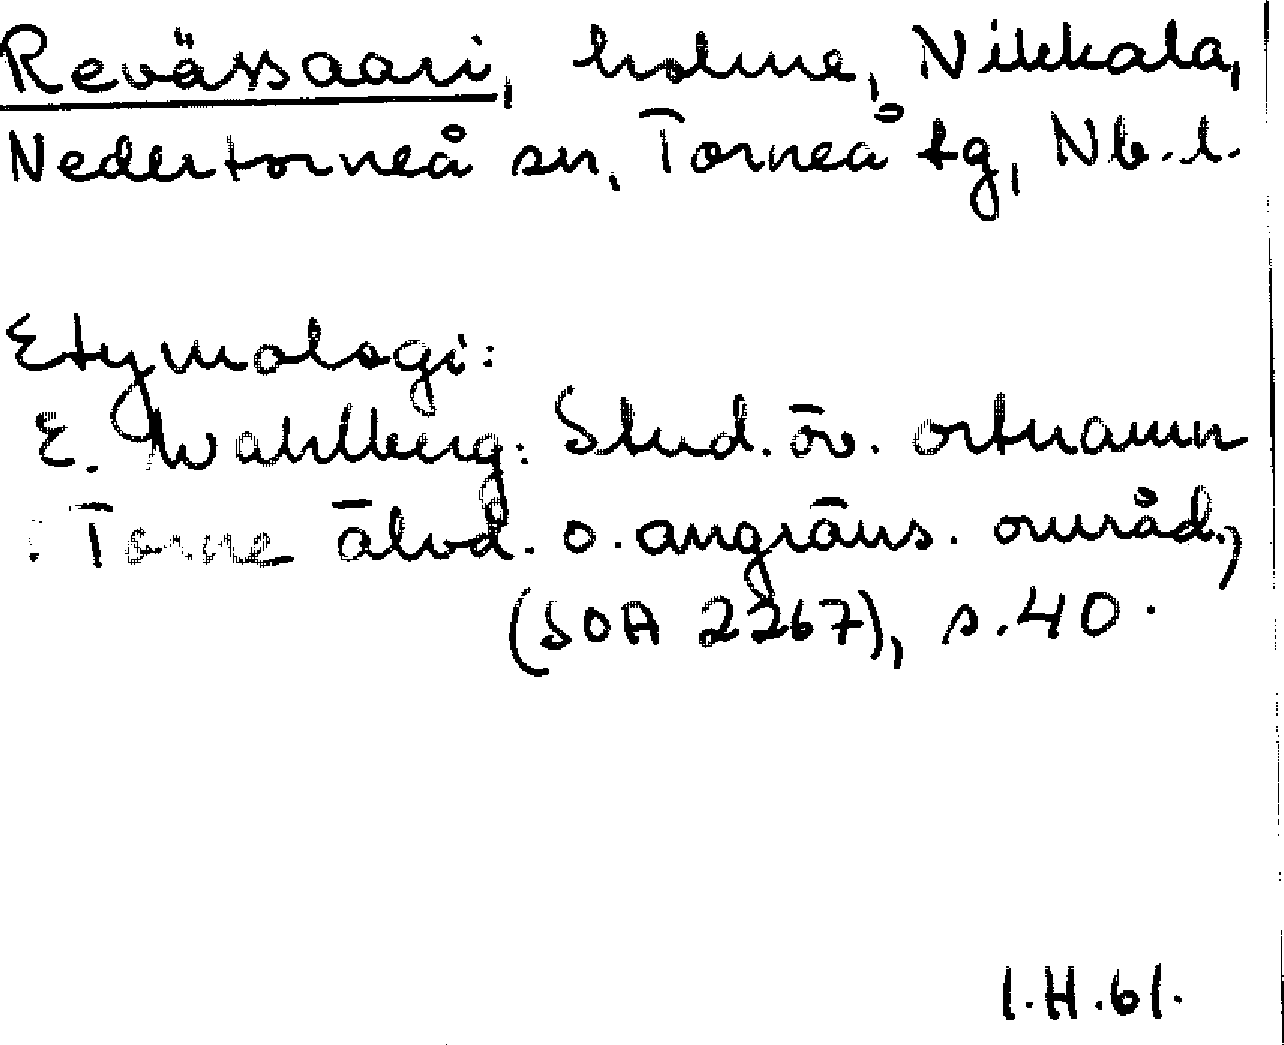 Revässaari, holme, Nikkala,
Nedertorneå sn, Torneå tg, Nb.l.
Etymologi:
E. Wahlberg: Stud. öv. ortnamn
i Torne älvd. o. angräns. områd.,
(SOA 2267), s.40.
I.H.61.